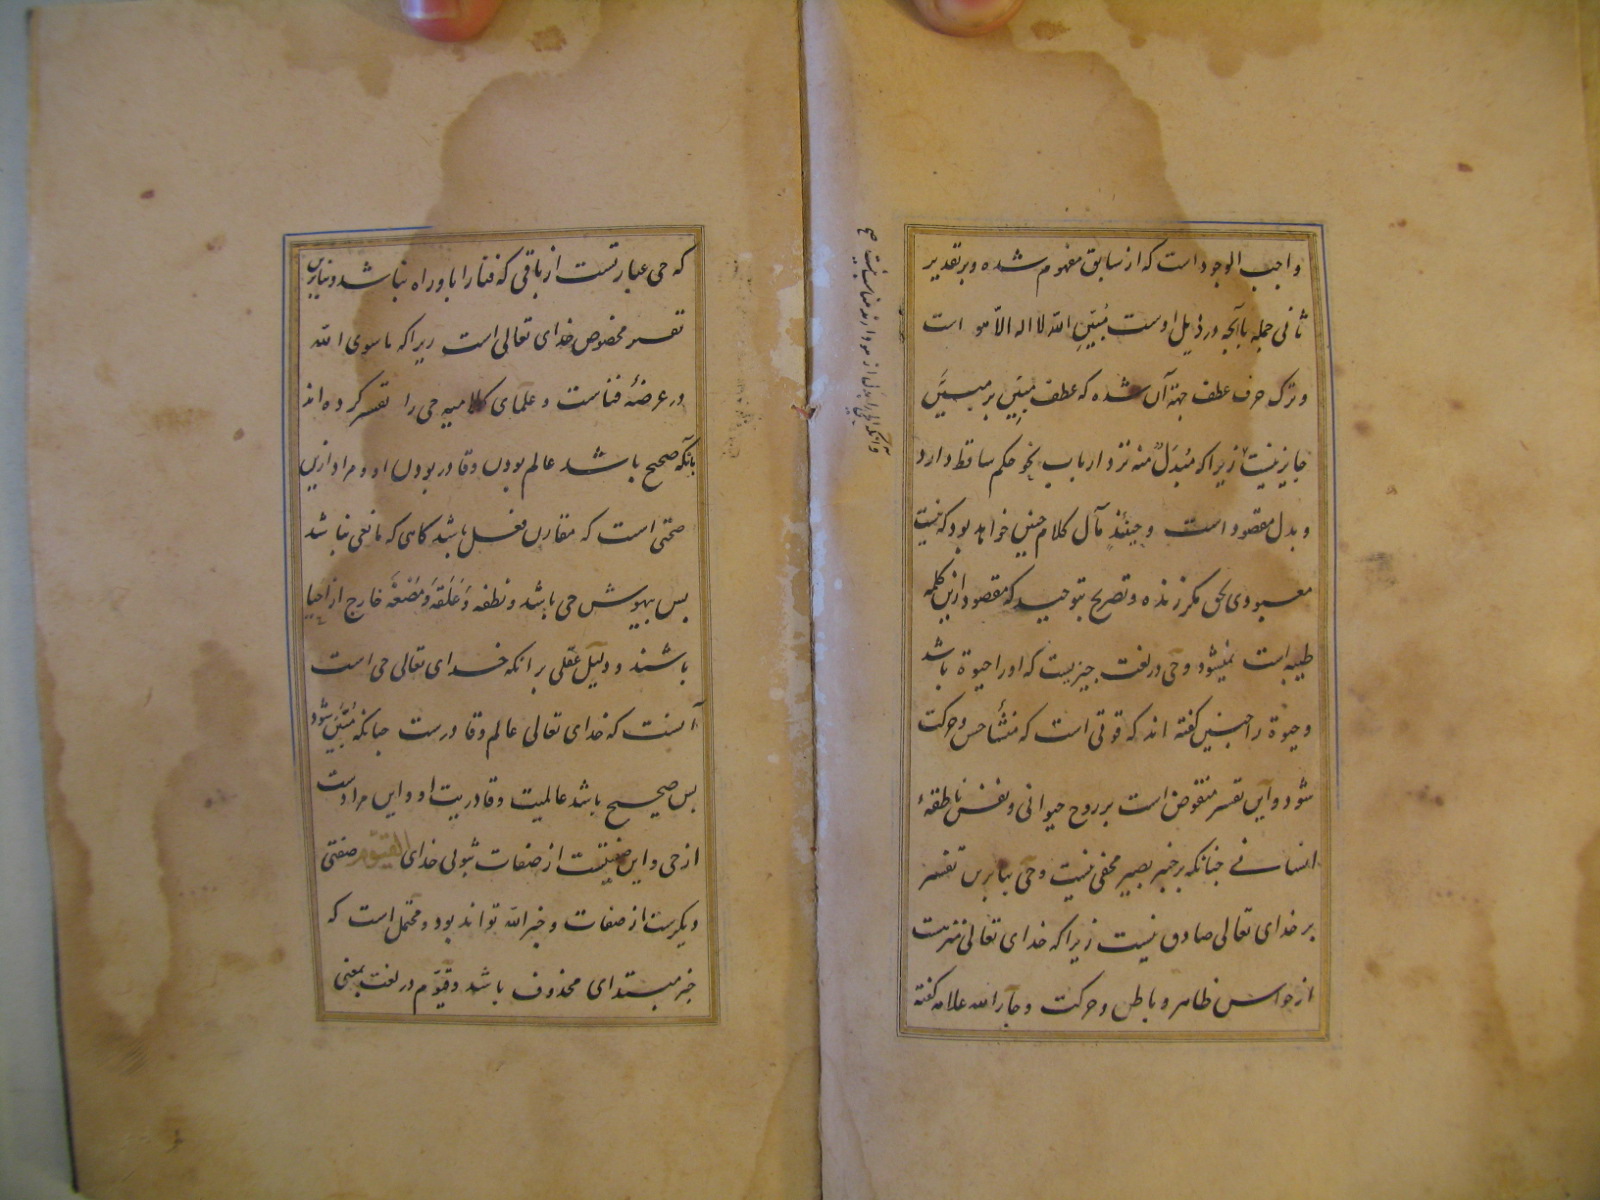 واجب الوجود است که از سابق مفهوم شده و بر تقدیر
ثانی جمله با آنچه در ذیل اوست مُبَیِّنِ الله لا اله الّا هو است
و ترک حرف عطف جهة آن شده که عطف مُبَیِّن بر مبیَّن
جایز نیست زیرا که مُبدَلٌ منه نزد ارباب نحو حکم ساقط دارد
و بدل مقصود است و حینئذ مآل کلام چنین خواهد بود که نیست
معبودی بحق مکر زنده و تصریح بتوحید که مقصود ازین کلمه
طیبه است نمیشود و حی در لغت چیزیست که او را حیوة باشد
و حیوة را چنین کفته اند که قوتی است که منشأ حس و حرکت
شود و این تفسیر منقوض است بر روح حیوانی و نفس ناطقهٔ
انسانی چنانکه بر خبیر بصیر مخفی نیست و حی بنابرین تفسیر
بر خدای تعالی صادق نیست زیرا که خدای تعالی منزهست
از حواس ظاهر و باطن و حرکت و جار الله علامه کفته
که حی عبارتست از باقی که فنا را باو راه نباشد و بنابرین
تفسیر مخصوص خدای تعالی است زیرا که ماسوی الله
در عرضهٔ فناست و علمای کلامیه حی را تفسیر کرده اند
بآنکه صحیح باشد عالم بودن و قادر بودن او و مراد ازین
صحتی است که مقارن فعل باشد کاهی که مانعی نباشد
پس بیهوش حی باشد و نطفه وَ عَلَقَه وَ مُضْغَه خارج از احیا
باشند و دلیل عقلی بر انکه خدای تعالی حی است
آنست که خدای تعالی عالم و قادرست چنانکه مُبَیَّن شود
پس صحیح باشد عالمیت و قادریت او و این مرادست
از حی و این صفتیست از صفات ثبوتی خدای القیّوم صفتی
دیکرست از صفات و خبر الله تواند بود و محتمل است که
خبر مبتدای محذوف باشد و قیّوم در لغت بمعنی